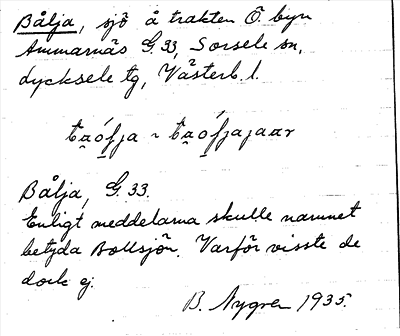 Bålja, sjö å trakten Ö. byn
Ammarnäs G. 33, Sorsele sn,
dycksele tg, Västerb. l.
Bålja, G. 33.
Enligt meddelarna skulle namnet
betyda Bollsjön. Varför visste de
dock ej.
B. Nygren 1935.